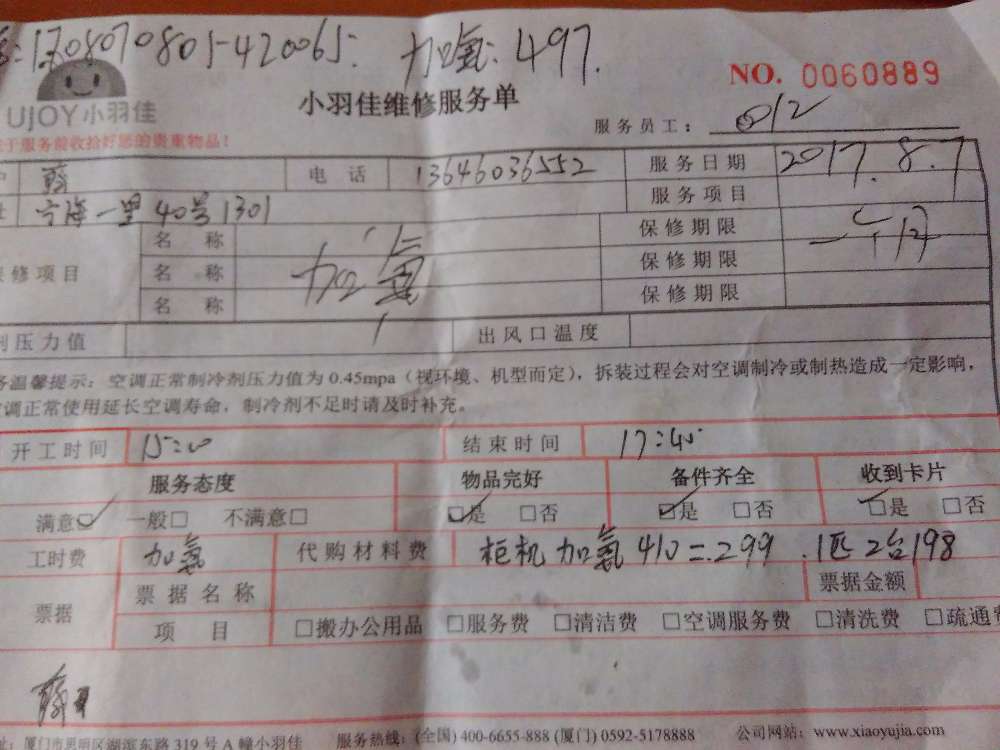 1708070805-420065 加氨:497.
NO. 0060889
UJOY小羽佳
小羽佳维修服务单
服务员工: 012
于服务前收拾好您的贵重物品!
电 话 13646036552 服务日期 2017.8.7
宁海一里40号1301 服务项目
名 称 保修期限
修项目 名 称 加氨 保修期限
名 称 保修期限
压力值 出风口温度
温馨提示:空调正常制冷剂压力值为 0.45mpa(视环境、机型而定),拆装过程会对空调制冷或制热造成一定影响,
调正常使用延长空调寿命,制冷剂不足时请及时补充。
开工时间 15:00 结束时间 17:40
服务态度 物品完好 备件齐全 收到卡片
满意☑ 一般□ 不满意□ ☑是 □否 ☑是 □否 ☑是 □否
工时费 加氨 代购材料费 柜机加氨410=299.1匹2台198
票据 票据名称 票据金额
项 目 □搬办公用品 □服务费 □清洁费 □空调服务费 □清洗费 □疏通费
厦门市思明区湖滨东路 319 号 A 幢小羽佳 服务热线:(全国) 400-6655-888 (厦门) 0592-5178888 公司网站:www.xiaoyujia.com